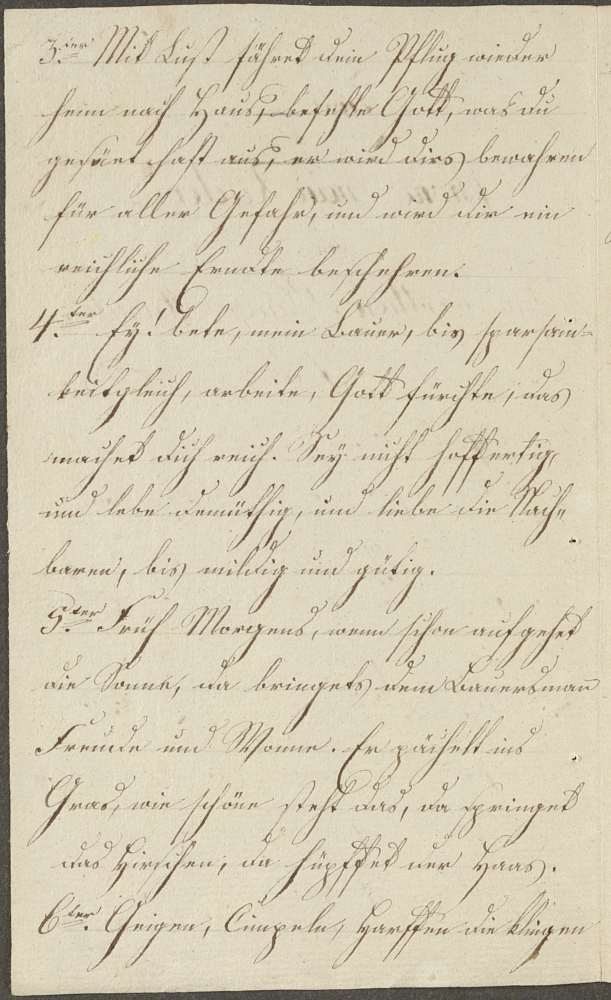 3.ter Mit Lust fähret dein Pflug wieder
heim nach Haus, befehle Gott, was du
gesäet hast aus, er wird dirs bewahren
für aller Gefahr, und wird dir ein
reichliche Erndte beschehren.
4.ter Ey! bete, mein Bauer, bis sparsam=
keitgleich, arbeite, Gott fürchte, das
machet dich reich. Sey nicht hoffertig,
und lebe demüthig, und liebe die Nach=
baren, bis mildig und gütig.
5.ter Früh Morgens, wenn schon aufgehet
die Sonne, da bringets dem Bauersman
Freude und Wonne. Er ins
Gras, wie schöne steht das, da springet
das Hirschen, da hüpffet der Haas.
6.ter Geigen, Cimpeln, Harffen die klingen